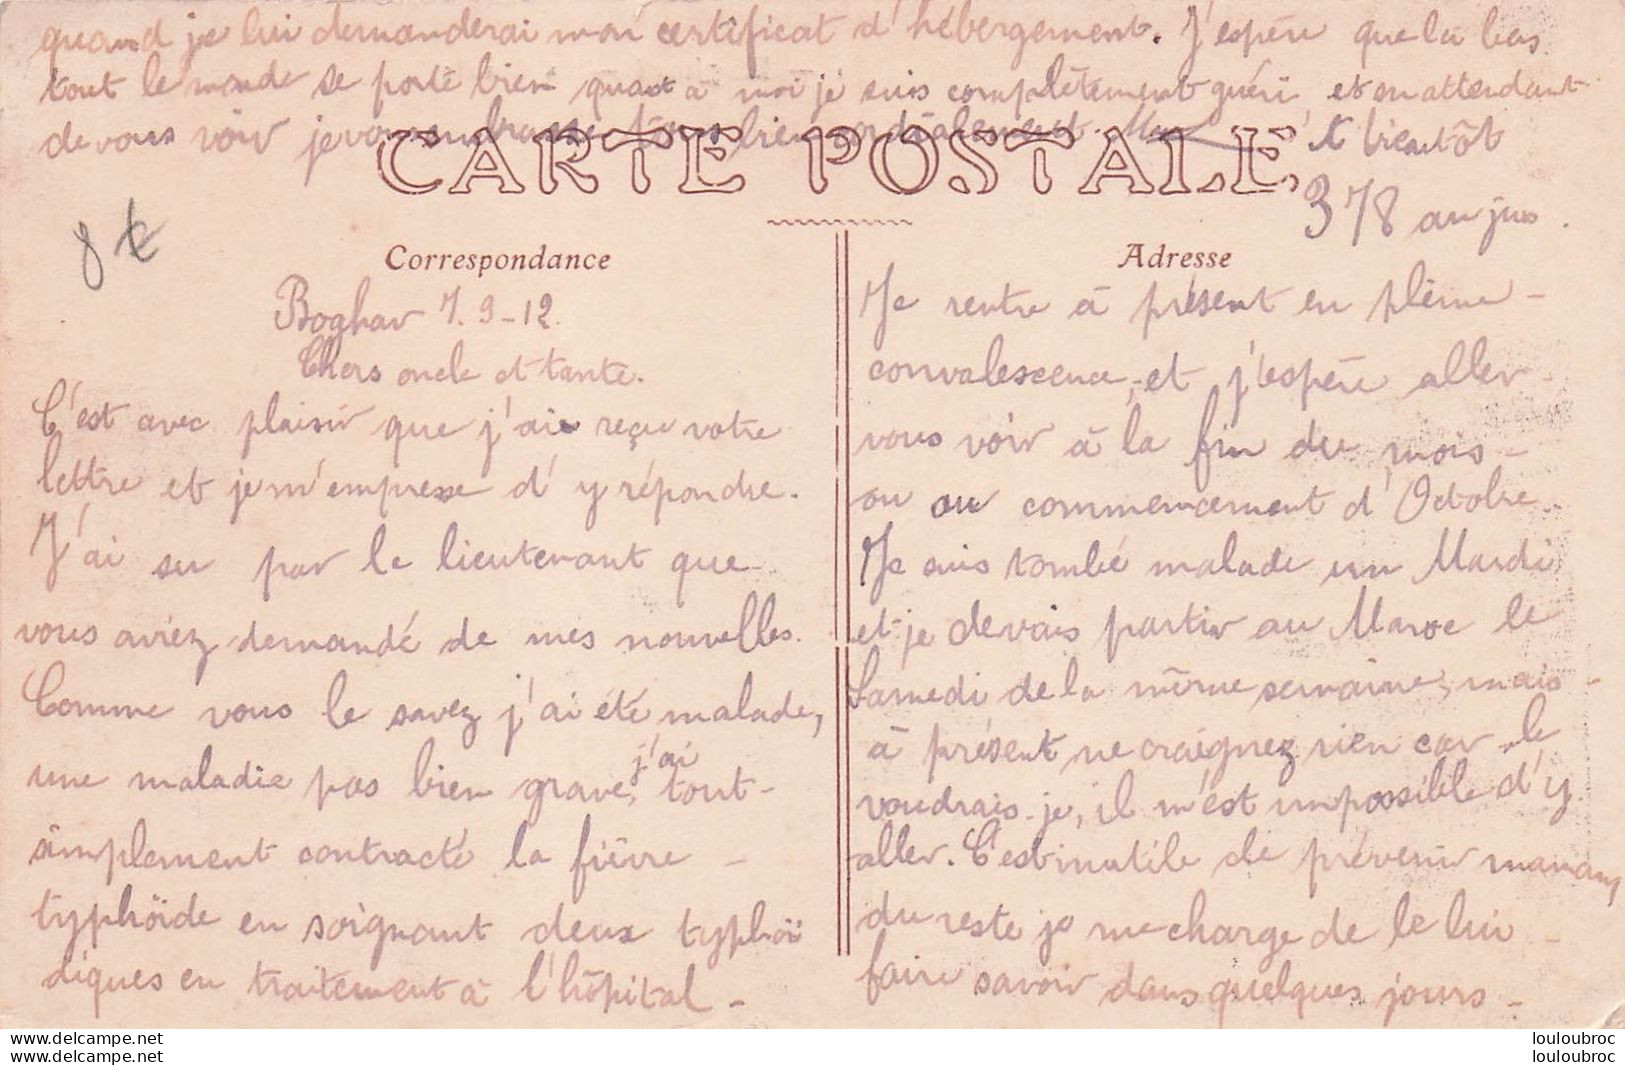 quand je lui demanderai mon certificat d'hébergement. J'espère que la bas
tout le monde se porte bien quant à moi je suis complètement guéri et en attendant
de vous voir je vous embrasse tous bien cordialement. A bientôt
CARTE POSTALE
378 au jus.
8€
Correspondance
Boghar 7.9-12.
Chers oncle et tante.
C'est avec plaisir que j'ai reçu votre
lettre et je m'empresse d'y répondre.
J'ai su par le lieutenant que
vous aviez demandé de mes nouvelles.
Comme vous le savez j'ai été malade,
une maladie pas bien grave, j'ai tout-
simplement contracté la fièvre -
typhoïde en soignant deux typhoï
diques en traitement à l'hôpital -
Adresse
Je rentre à présent en pleine -
convalescence, et j'espère aller
vous voir à la fin du mois -
ou au commencement d'Octobre.
Je suis tombé malade un Mardi
et je devais partir au Maroc le
Samedi de la même semaine, mais -
à présent ne craignez rien car le
voudrais-je, il m'est impossible d'y
aller. C'est inutile de prévenir maman,
du reste je me charge de le lui -
faire savoir dans quelques jours -
louloubroc
louloubroc
www.delcampe.net
www.delcampe.net